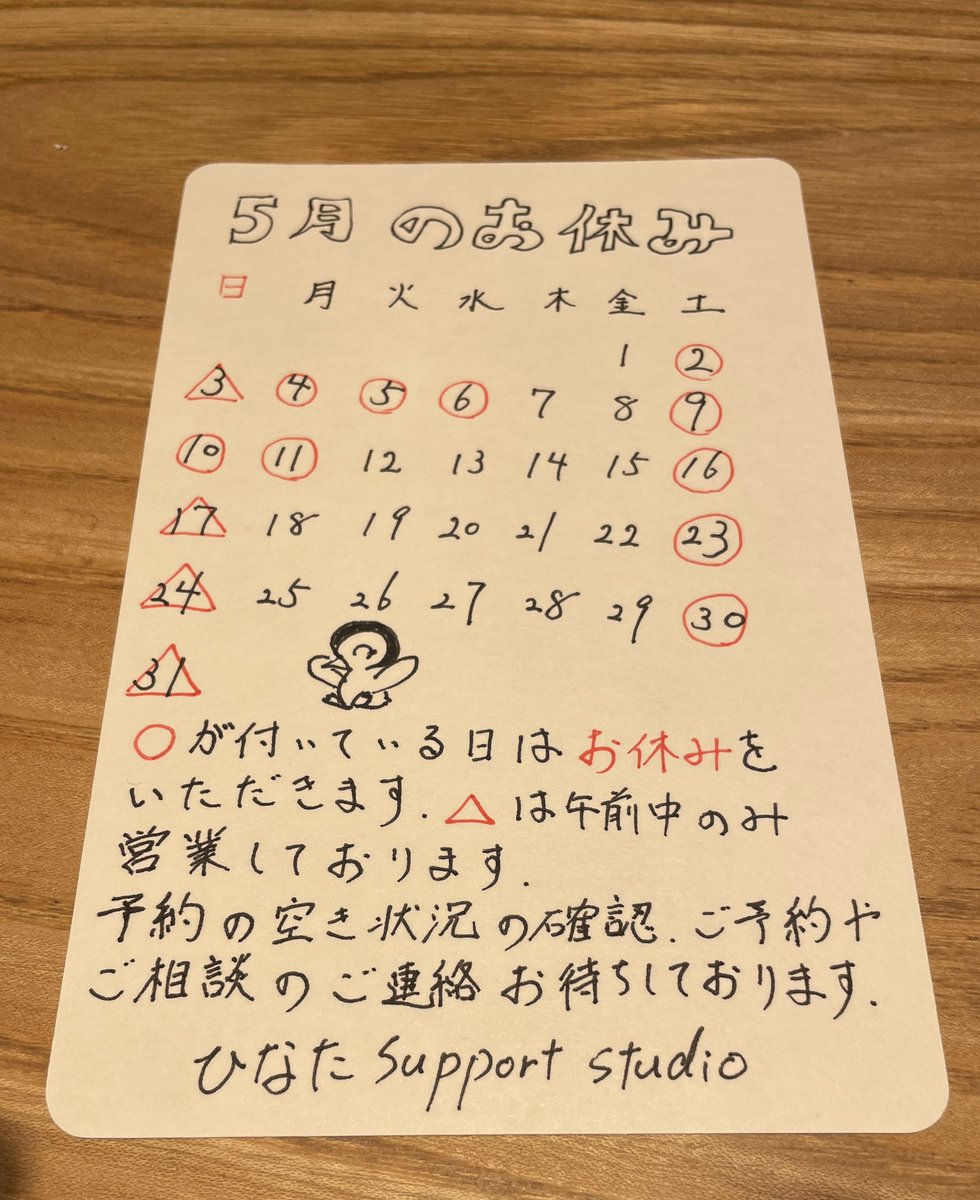 5月のお休み
日 月 火 水 木 金 土
1 2
3 4 5 6 7 8 9
10 11 12 13 14 15 16
17 18 19 20 21 22 23
24 25 26 27 28 29 30
31
○が付いている日はお休みを
いただきます. △は午前中のみ
営業しております.
予約の空き状況の確認. ご予約や
ご相談のご連絡お待ちしております.
ひなた support studio